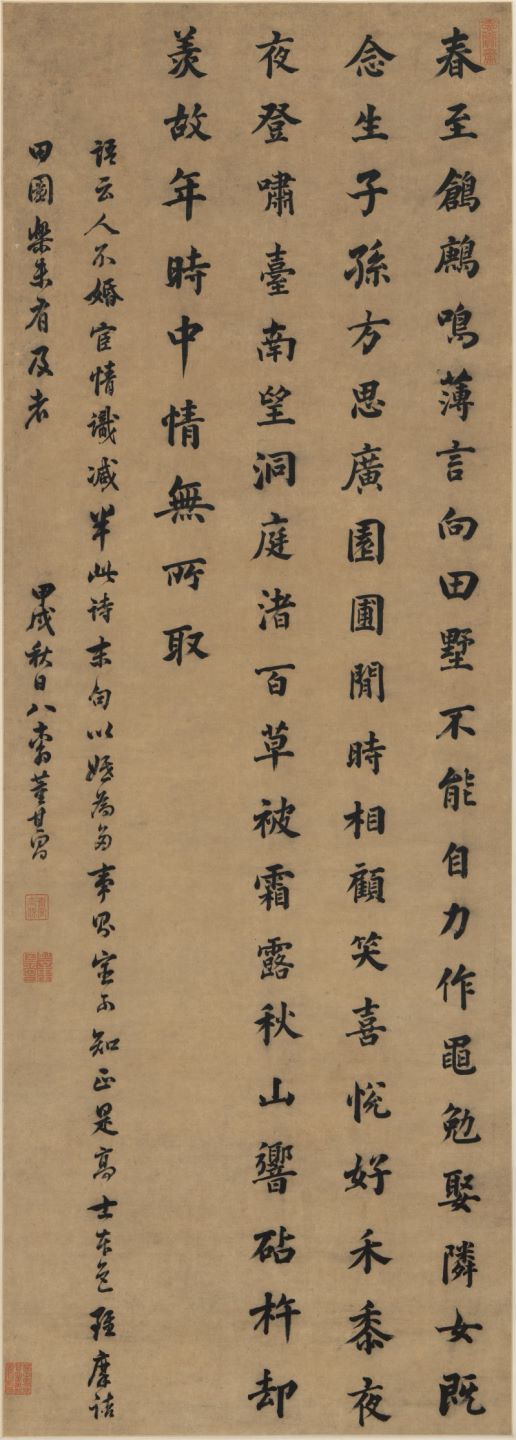 春至鶬鶊鳴薄言向田墅不能自力作黽勉娶隣女既
念生子孫方思廣園圃閒時相顧笑喜悅好禾黍夜
夜登嘯臺南望洞庭渚百草被霜露秋山響砧杵却
羨故年時中情無所取
語云人不婚宦情識减半此詩末句以婚為多事則宦可知正是高士本色雖摩詰
田園樂未有及者
甲戌秋日八十翁董其昌